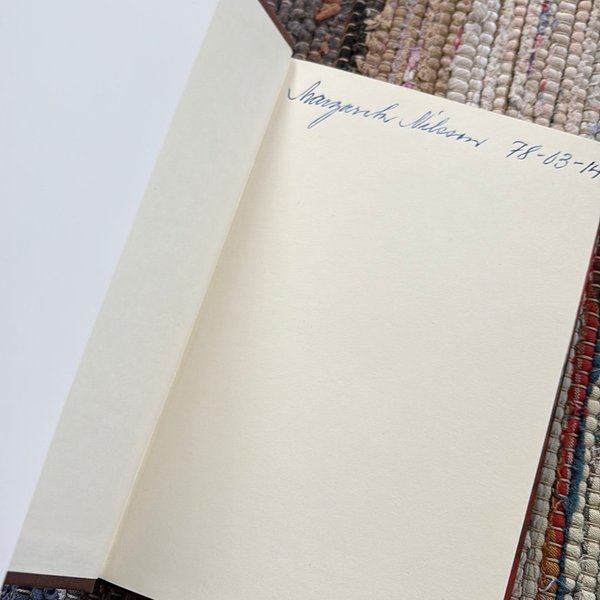 Margareta Nilsson 78-03-14